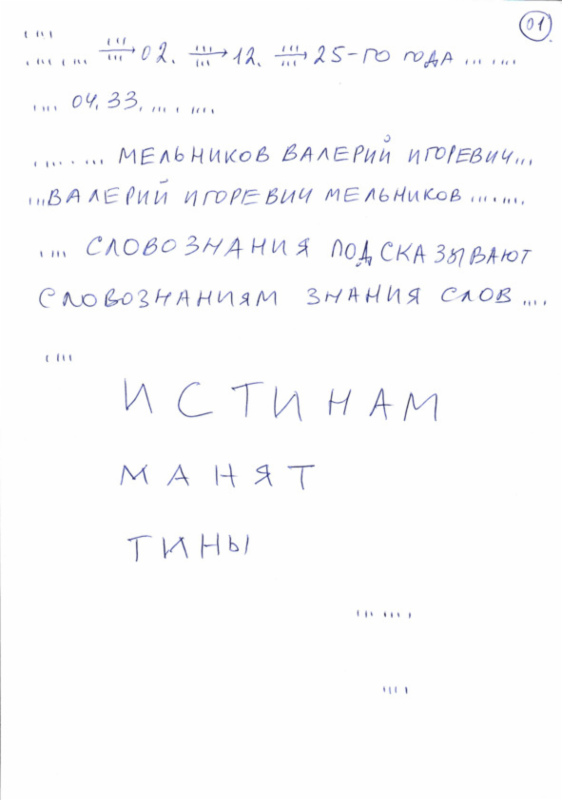 01
02. 12. 25-ГО ГОДА ... ...
.... 04.33. ... . ....
... . ... МЕЛЬНИКОВ ВАЛЕРИЙ ИГОРЕВИЧ...
...ВАЛЕРИЙ ИГОРЕВИЧ МЕЛЬНИКОВ ... ....
.... СЛОВОЗНАНИЯ ПОДСКАЗЫВАЮТ
СЛОВОЗНАНИЯМ ЗНАНИЯ СЛОВ ....
ИСТИНАМ
МАНЯТ
ТИНЫ